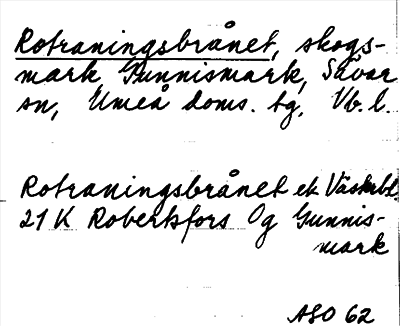 Rotraningsbrånet, skogs-
mark, Gunnismark, Sävar
sn, Umeå doms. tg, Vb. l.
Rotraningsbrånet ek Västerbt.
21 K Robertsfors Og Gunnis-
mark
ASO 62